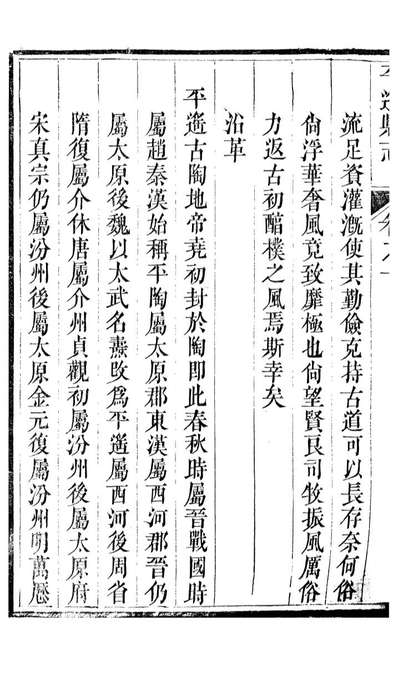 平遙縣志 卷之一
流足資灌溉使其勤儉克持古道可以長存奈何俗
尚浮華奢風竟致靡極也尚望賢良司牧振風厲俗
力返古初醕樸之風焉斯幸矣
沿革
平遙古陶地帝堯初封於陶即此春秋時屬晉戰國時
屬趙秦漢始稱平陶屬太原郡東漢屬西河郡晉仍
屬太原後魏以太武名燾改爲平遙屬西河後周省
隋復屬介休唐屬介州貞觀初屬汾州後屬太原府
宋真宗仍屬汾州後屬太原金元復屬汾州明萬歷